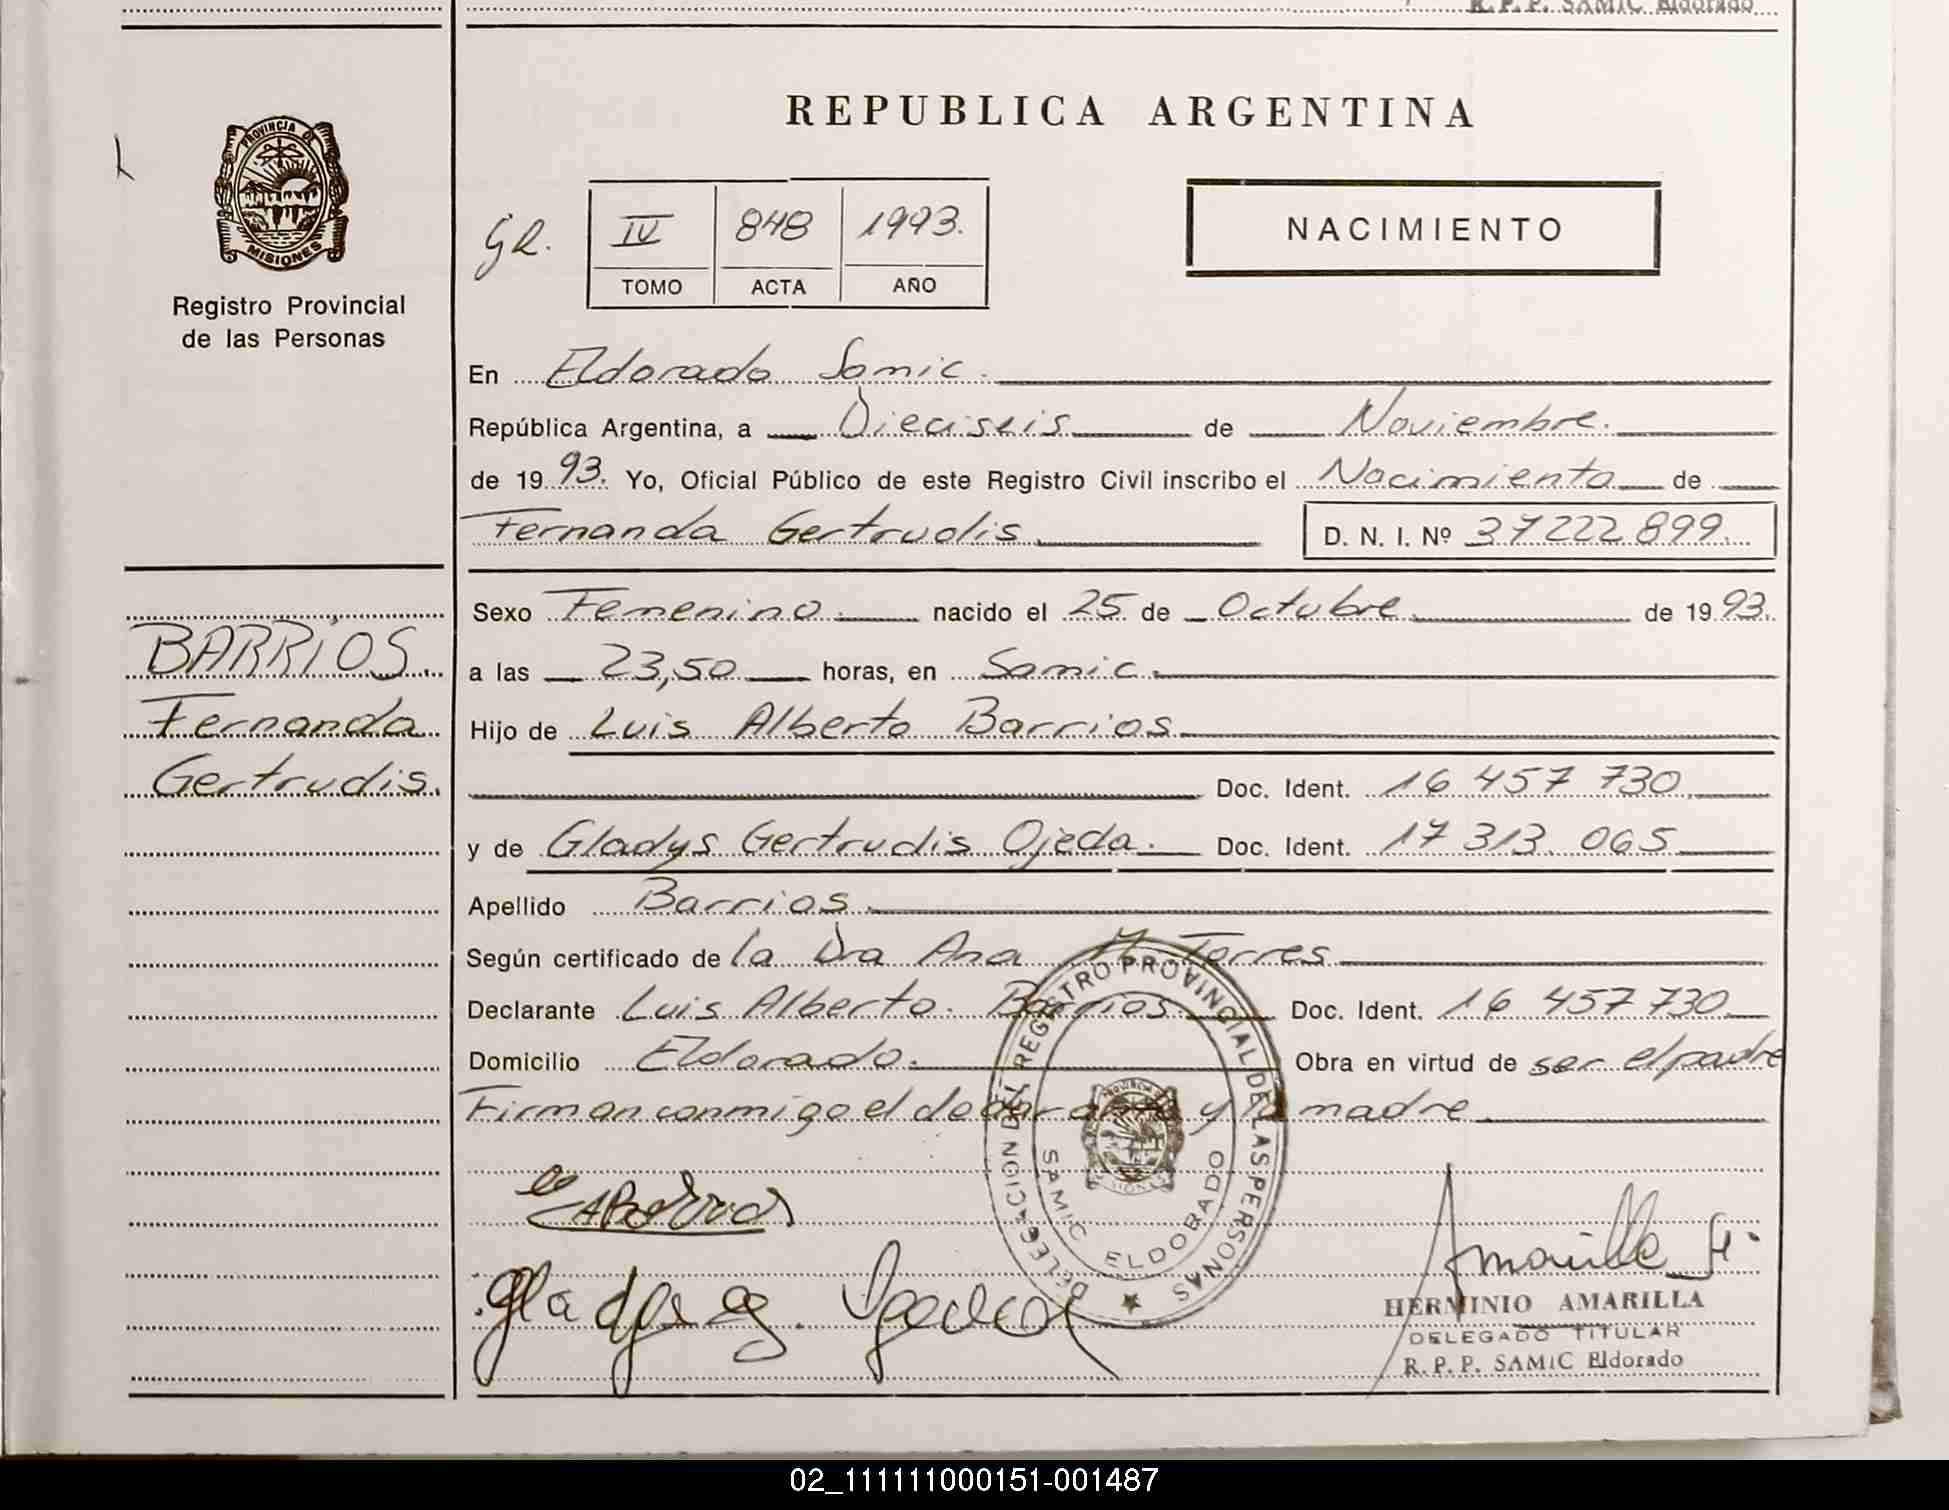 R. P. P. SAMIC Eldorado
PROVINCIA D
MISIONES
Registro Provincial
de las Personas
REPUBLICA ARGENTINA
GR.
IV 848 1993.
TOMO ACTA AÑO
NACIMIENTO
En Eldorado Samic.
República Argentina, a Dieciseis de Noviembre.
de 19 93. Yo, Oficial Público de este Registro Civil inscribo el Nacimiento de
Fernanda Gertrudis. D. N. I. Nº 37222899.
Sexo Femenino. nacido el 25 de Octubre. de 19 93.
BARRIOS.
Fernanda
Gertrudis.
a las 23,50 horas, en Samic.
Hijo de Luis Alberto Barrios.
Doc. Ident. 16 457 730.
y de Gladys Gertrudis Ojeda. Doc. Ident. 17 313.065
Apellido Barrios.
Según certificado de la Dra Ana M. Torres
Declarante Luis Alberto. Barrios. Doc. Ident. 16 457 730
Domicilio Eldorado. Obra en virtud de ser el padre
Firman conmigo el declarante y la madre
DELEGACION DEL REGISTRO PROVINCIAL DE LAS PERSONAS
SAMIC ELDORADO
MISIONES
Gladys G.
Amarilla H.
HERMINIO AMARILLA
DELEGADO TITULAR
R. P. P. SAMIC Eldorado
02_111111000151-001487